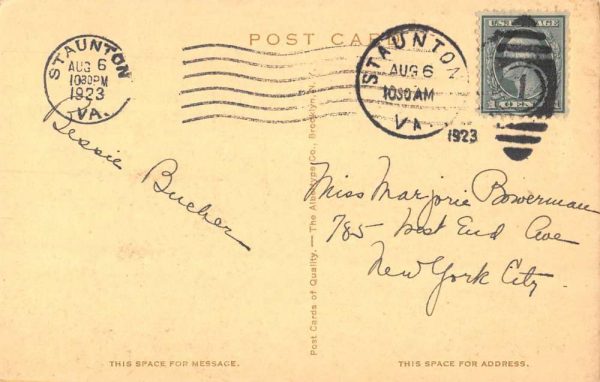 POST CARD
STAUNTON
AUG 6
1030PM
1923
VA.
STAUNTON
AUG 6
1030AM
VA.
1923
Bessie
Bucher
Miss Marjorie Bowerman
785 West End Ave
New York City.
Post Cards of Quality. — The Albertype Co., Brooklyn, N.Y.
THIS SPACE FOR MESSAGE.
THIS SPACE FOR ADDRESS.